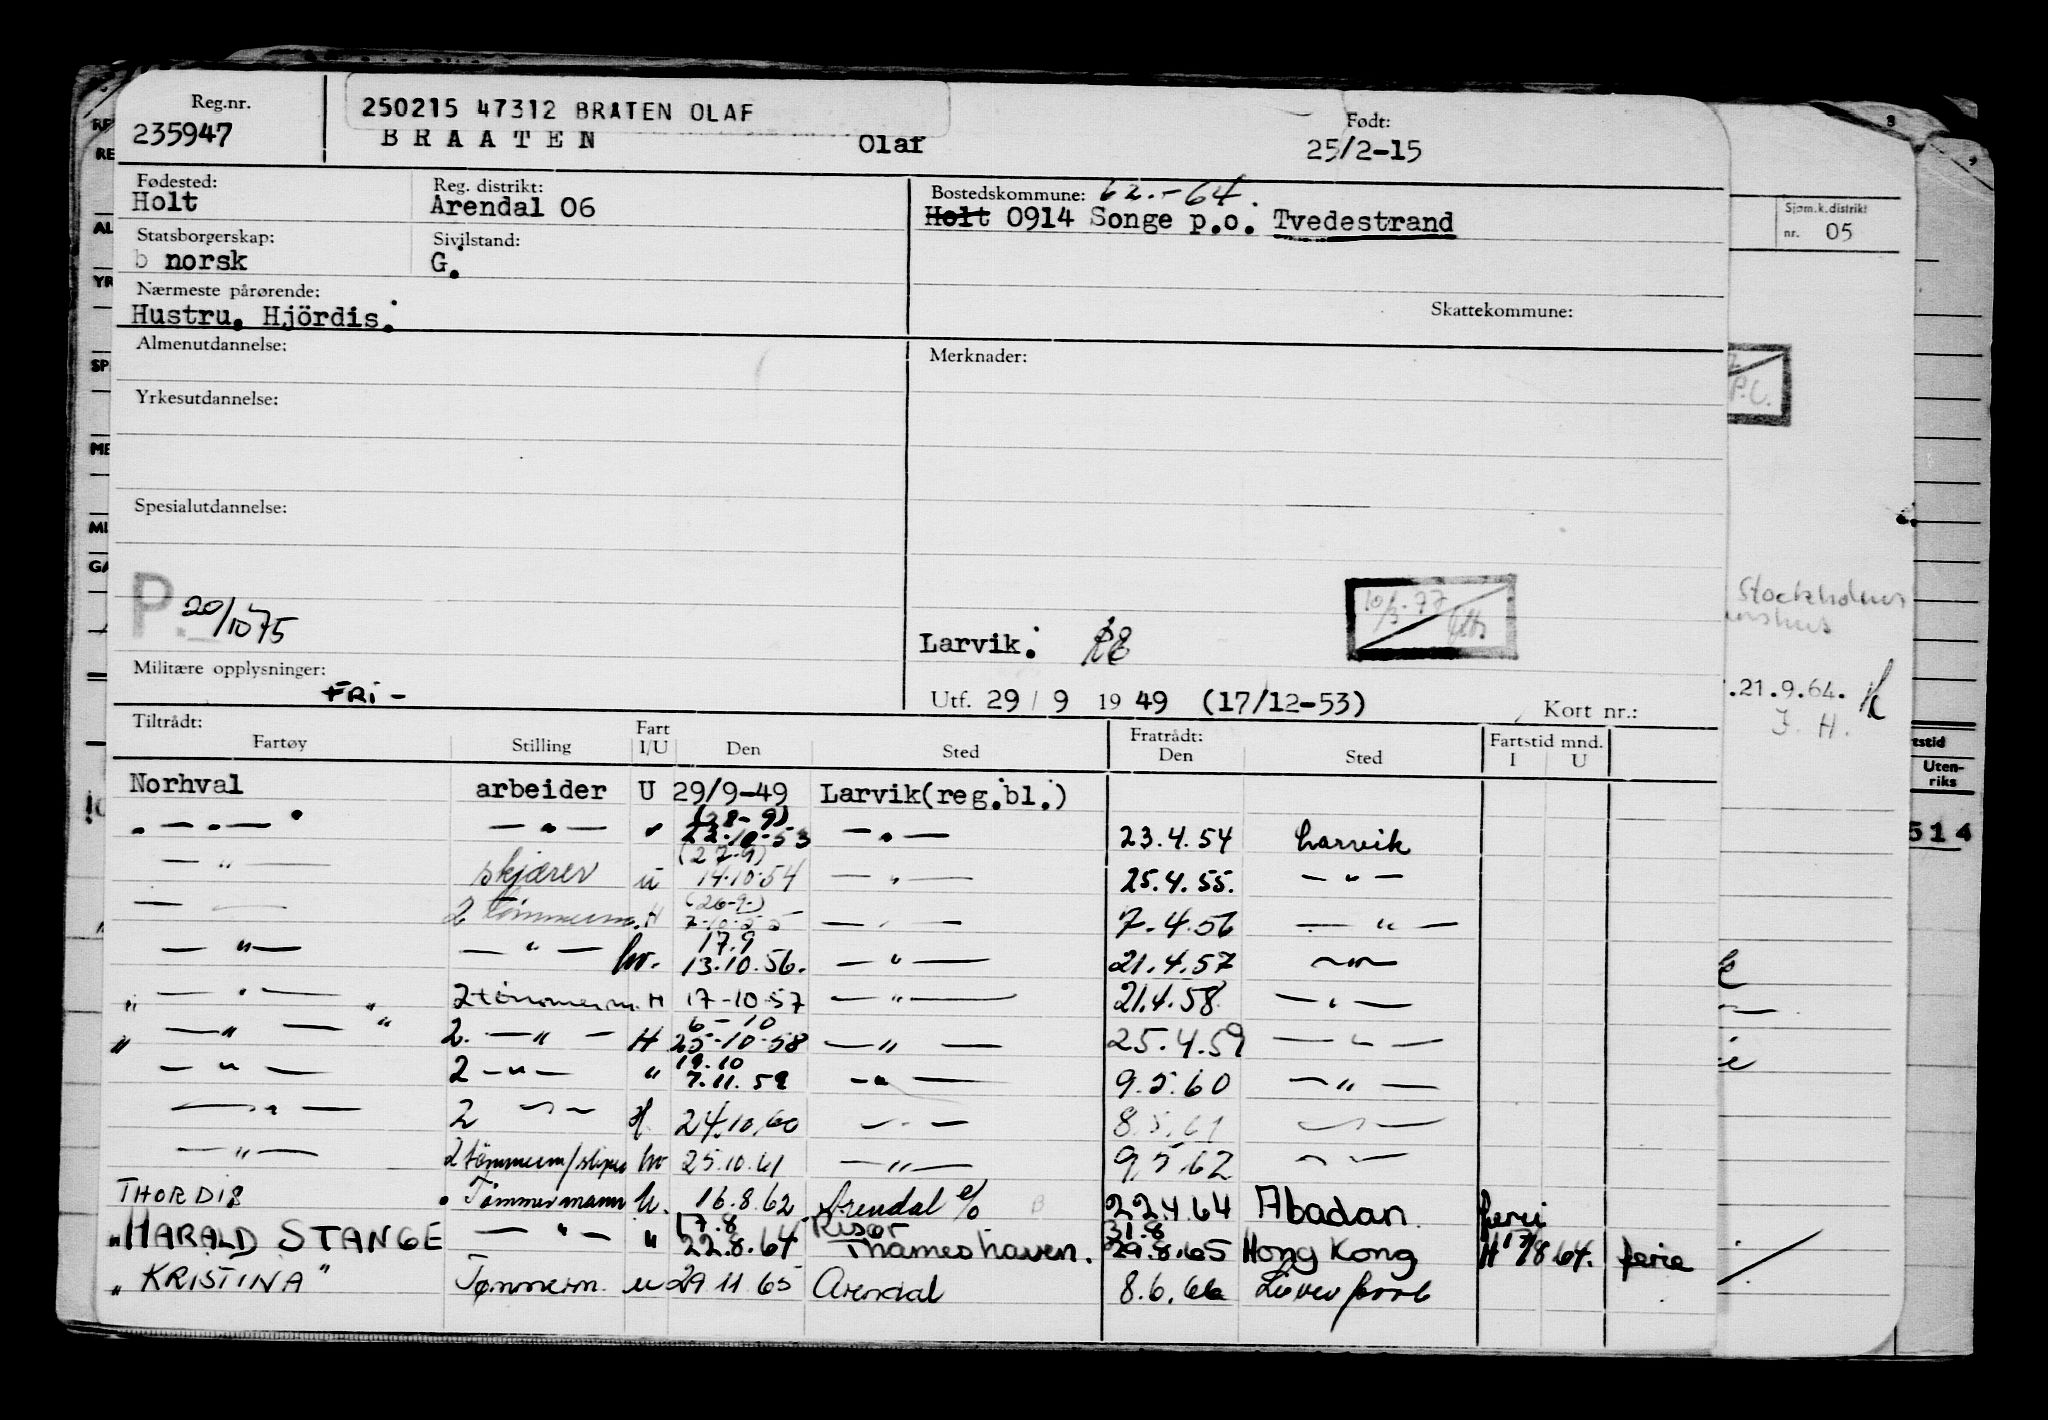 Reg.nr.
235947
250215 47312 BRATEN OLAF
BRAATEN Olaf
Født:
25/2-15
Fødested:
Holt
Reg. distrikt:
Arendal 06
Bostedskommune: 62.-64.
Holt 0914 Songe p.o. Tvedestrand
Sjøm.k.distrikt
nr. 05
Statsborgerskap:
b norsk
Sivilstand:
G.
Nærmeste pårørende:
Hustru. Hjördis.
Skattekommune:
Almenutdannelse:
Merknader:
Yrkesutdannelse:
Spesialutdannelse:
P. 20/10 75
Larvik:
10/3-77
Militære opplysninger:
FRI -
Utf. 29 / 9 19 49 (17/12-53)
Kort nr.:
.21.9.64.
J. H.
Tiltrådt:
Fartøy Stilling Fart I/U Den Sted
Fratrådt:
Den Sted
Fartstid mnd.
I U
Uten-
riks
514
Norhval arbeider U 29/9-49 Larvik(reg.bl.)
— " — — " — " (28-9) 22-10-53 — " — 23.4.54 Larvik
— " — skjærer u (27-9) 14.10.54 — " — 25.4.55. — " —
— " — 2 tømmerm. H (26-9) 7-10-55 — " — 7.4.56 — " —
— " — — " — hv. 17.9 13.10.56. — " — 21.4.57 — " —
" — " — " 2 tömmerm. H 17-10-57 — " — 21.4.58 — " —
" — " — " 2. — " — H 6-10 25-10-58 — " — 25.4.59 — " —
— " — 2 — " — " 19.10 7.11.59 — " — 9.5.60 — " —
— " — 2 — " — H 24.10.60 — " — 8.5.61 — " —
— " — 2 tömmerm/ hv 25.10.61 — " — 9.5.62 — " —
THORDIS Tömmermann u. 16.8.62 Arendal e/o 22.4.64 Abadan. ferie
"HARALD STANGE — " — " 17.8 22.8.64 Risør Thameshaven. 31.8 29.8.65 Hong Kong H 17/8 64. ferie
"KRISTINA" Tømmerm. u 29 11 65 Arendal 8.6.66 Liverpool